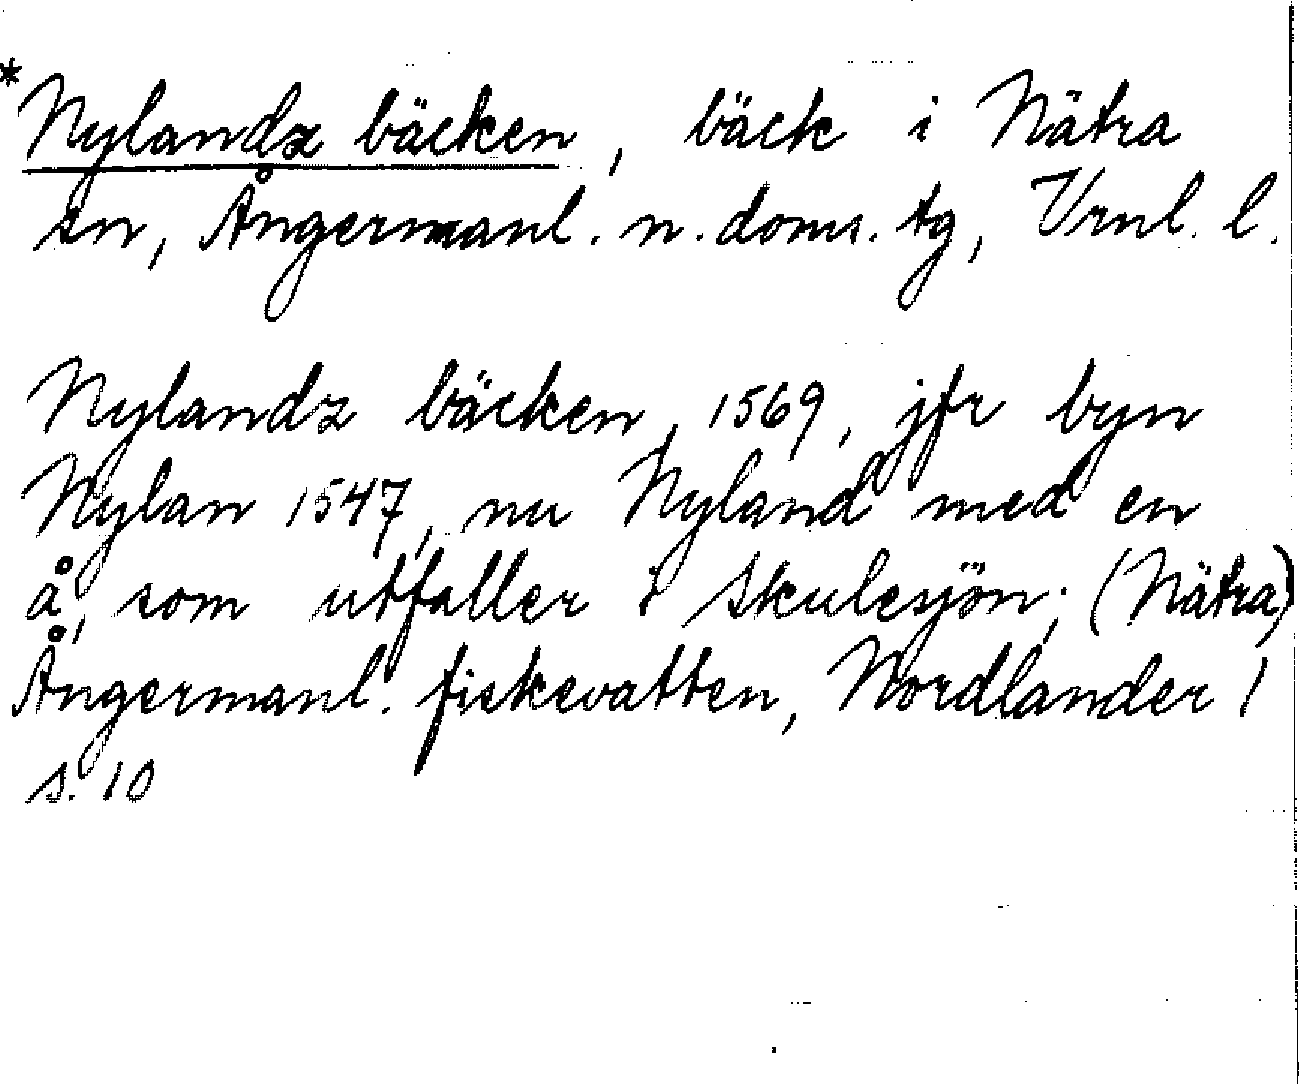 *Nylandz bäcken, bäck i Nätra
sn, Ångermanl. n. doms. tg, Vrnl. l.
Nylandz bäcken, 1569, jfr byn
Nylan 1547, nu Nyland med en
å, som utfaller i Skulesjön; (Nätra)
Ångermanl. fiskevatten, Nordlander 1
s. 10